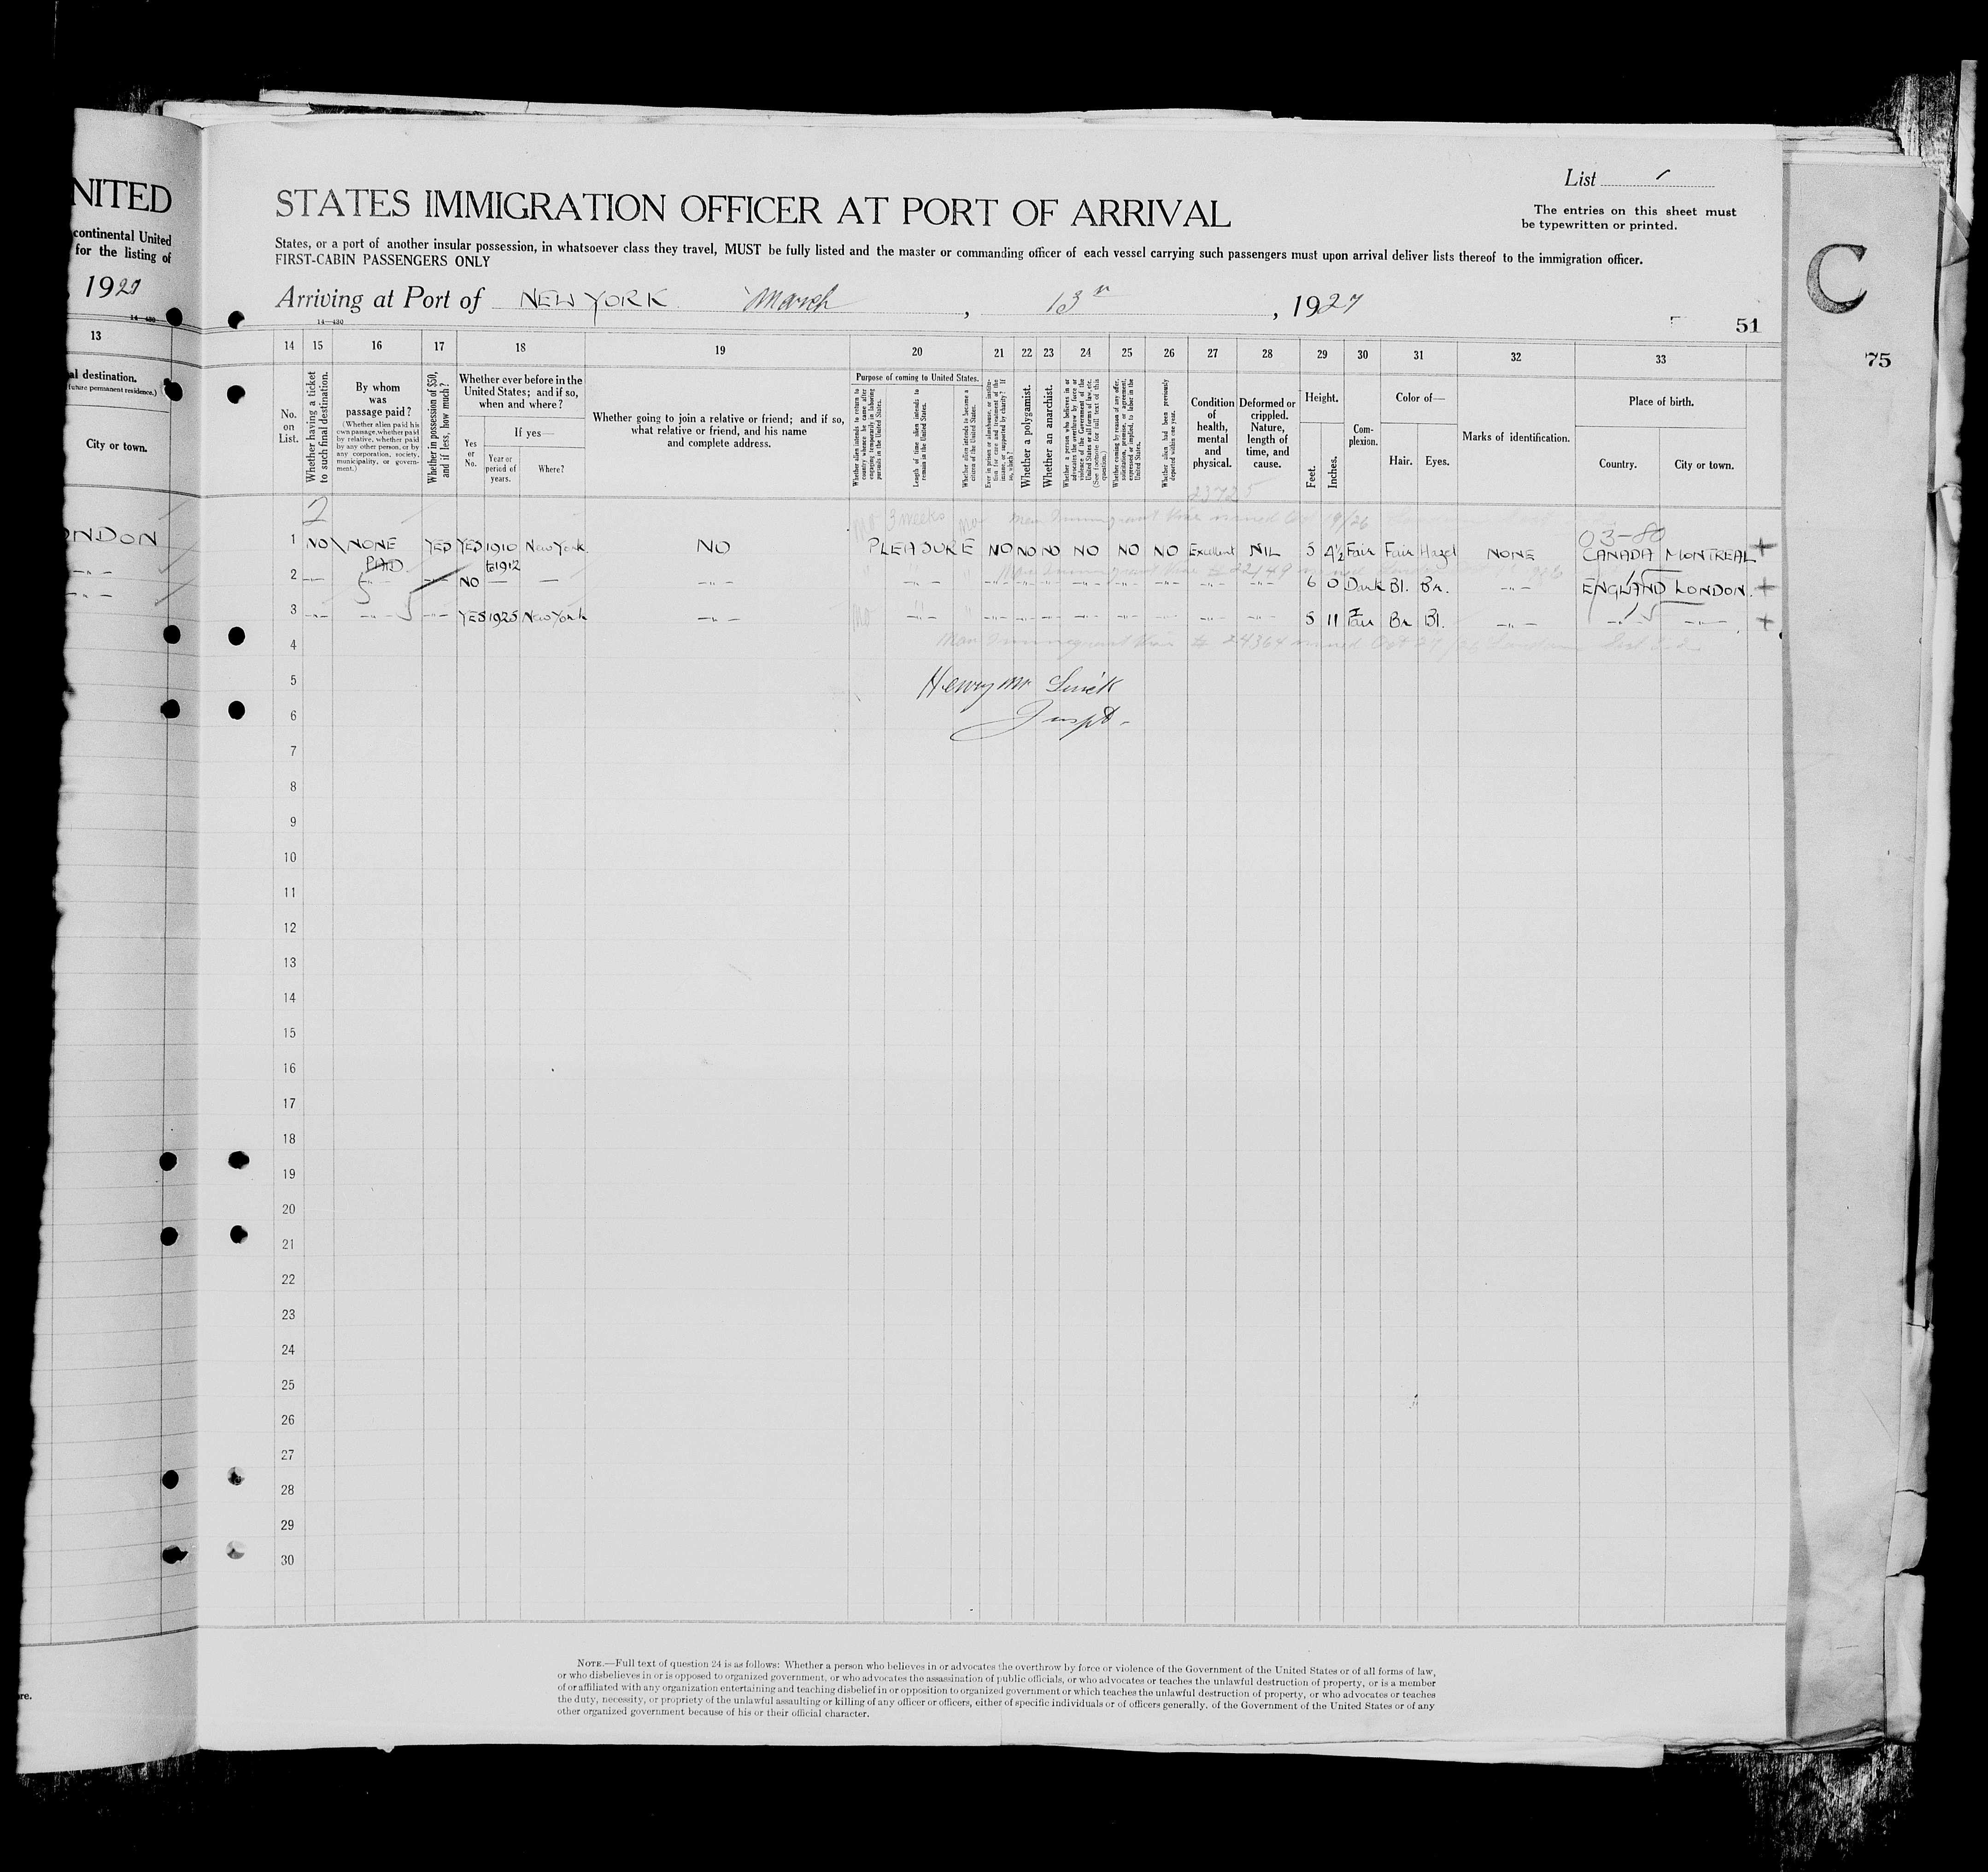 NITED
continental United
for the listing of
, 1921
14—430
13
al destination.
(future permanent residence.)
City or town.
ONDON
—"—
—"—
re.
List 1
STATES IMMIGRATION OFFICER AT PORT OF ARRIVAL
The entries on this sheet must
be typewritten or printed.
States, or a port of another insular possession, in whatsoever class they travel, MUST be fully listed and the master or commanding officer of each vessel carrying such passengers must upon arrival deliver lists thereof to the immigration officer.
FIRST-CABIN PASSENGERS ONLY
Arriving at Port of NEW YORK March, 13, 1927
14—430
51
C
75
14 15 16 17 18 19 20 21 22 23 24 25 26 27 28 29 30 31 32 33
No. on List.
Whether having a ticket to such final destination.
By whom was passage paid?
(Whether alien paid his own passage, whether paid by relative, whether paid by any other person, or by any corporation, society, municipality, or government.)
Whether in possession of $50, and if less, how much?
Whether ever before in the United States; and if so, when and where?
Yes or No.
If yes—
Year or period of years.
Where?
Whether going to join a relative or friend; and if so, what relative or friend, and his name and complete address.
Purpose of coming to United States.
Whether alien intends to return to country whence he came after engaging temporarily in laboring pursuits in the United States.
Length of time alien intends to remain in the United States.
Whether alien intends to become a citizen of the United States.
Ever in prison or almshouse, or institution for care and treatment of the insane, or supported by charity? If so, which?
Whether a polygamist.
Whether an anarchist.
Whether a person who believes in or advocates the overthrow by force or violence of the Government of the United States or all forms of law, etc. (See footnote for full text of this question.)
Whether coming by reason of any offer, solicitation, promise, or agreement, expressed or implied, to labor in the United States.
Whether alien had been previously deported within one year.
Condition of health, mental and physical.
Deformed or crippled. Nature, length of time, and cause.
Height.
Feet.
Inches.
Complexion.
Color of—
Hair.
Eyes.
Marks of identification.
Place of birth.
Country.
City or town.
2
23725
no 3 weeks no Non Immigrant Visa issued Oct 19/26
03-80
1 NO NONE PAID YES YES 1910 to 1912 New York. NO PLEASURE NO NO NO NO NO NO Excellent NIL 5 4½ Fair Fair Hazel NONE CANADA MONTREAL +
2 —"— —"— NO — — —"— —"— —"— —"— —"— —"— —"— —"— —"— —"— 6 0 Dark Bl. Br. —"— ENGLAND LONDON. +
3 —"— —"— —"— YES 1925 New York —"— no —"— —"— —"— —"— —"— —"— —"— —"— —"— 5 11 Fair Br Bl. —"— —"— —"— +
Non Immigrant Visa # 24364 issued Oct 27/26 London
4
5
Henry M
Inspt.
6
7
8
9
10
11
12
13
14
15
16
17
18
19
20
21
22
23
24
25
26
27
28
29
30
NOTE.—Full text of question 24 is as follows: Whether a person who believes in or advocates the overthrow by force or violence of the Government of the United States or of all forms of law,
or who disbelieves in or is opposed to organized government, or who advocates the assassination of public officials, or who advocates or teaches the unlawful destruction of property, or is a member
of or affiliated with any organization entertaining and teaching disbelief in or opposition to organized government or which teaches the unlawful destruction of property, or who advocates or teaches
the duty, necessity, or propriety of the unlawful assaulting or killing of any officer or officers, either of specific individuals or of officers generally, of the Government of the United States or of any
other organized government because of his or their official character.